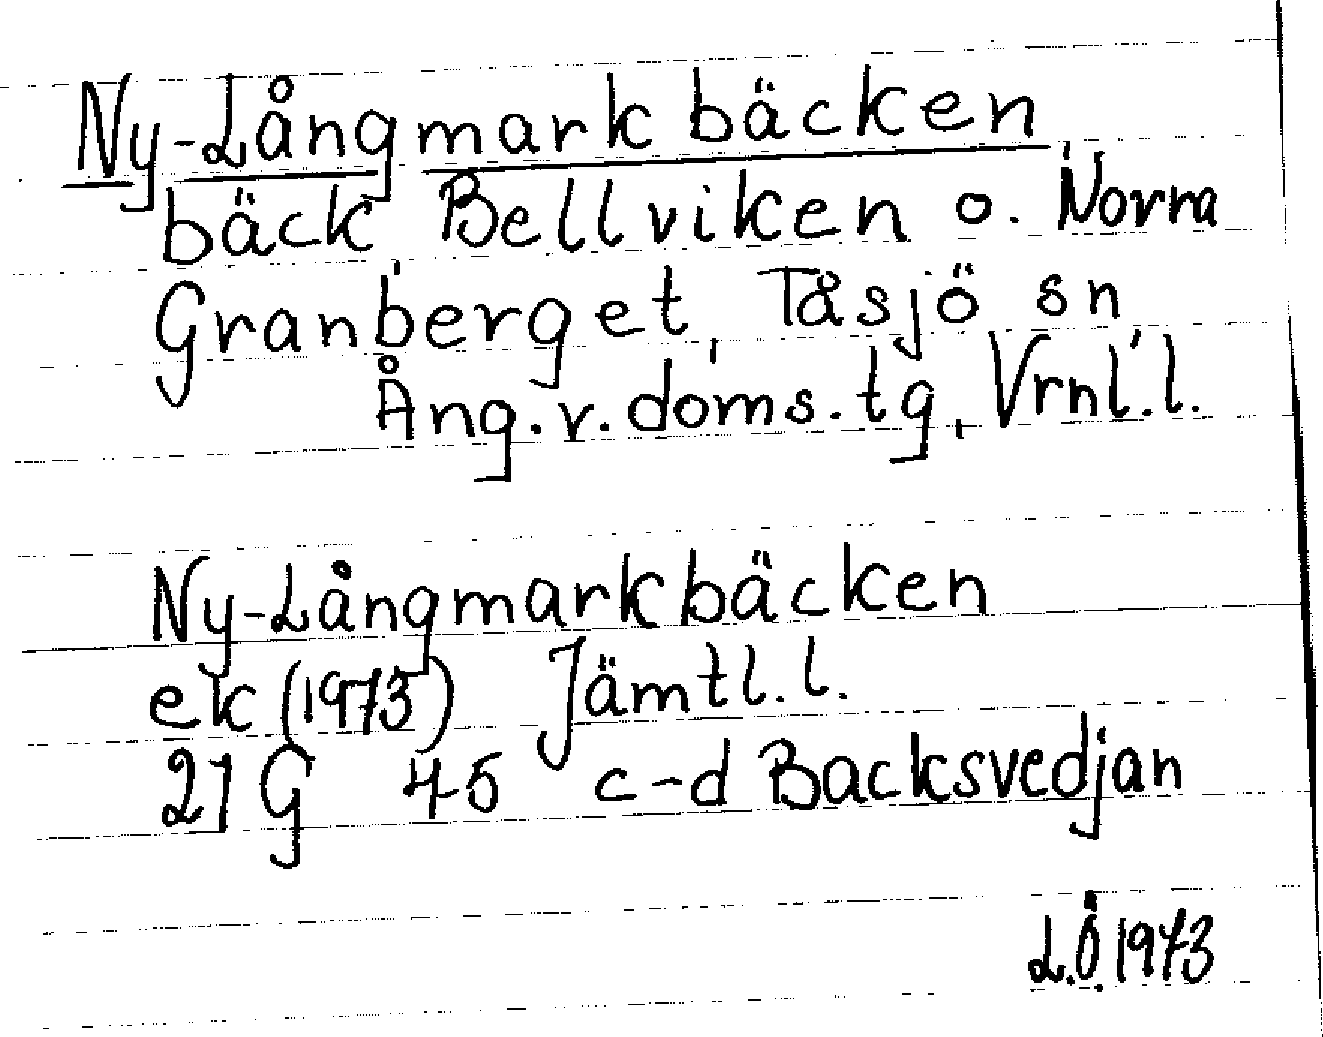 Ny-Långmarkbäcken
bäck Bellviken o. Norra
Granberget, Tåsjö sn,
Ång.v.doms.tg, Vrnl.l.
Ny-Långmarkbäcken
ek (1973) Jämtl.l.
21 G 45 c-d Backsvedjan
L.Ö. 1973